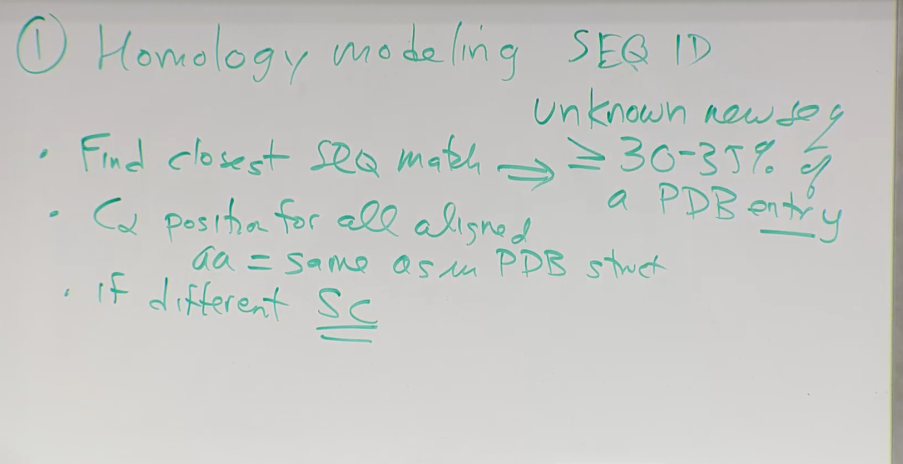 ① Homology modeling SEQ ID
unknown new seq
• Find closest SEQ match ⇒ ≥ 30-35% of
a PDB entry
• Cα position for all aligned
aa = same as in PDB struct
• if different SC